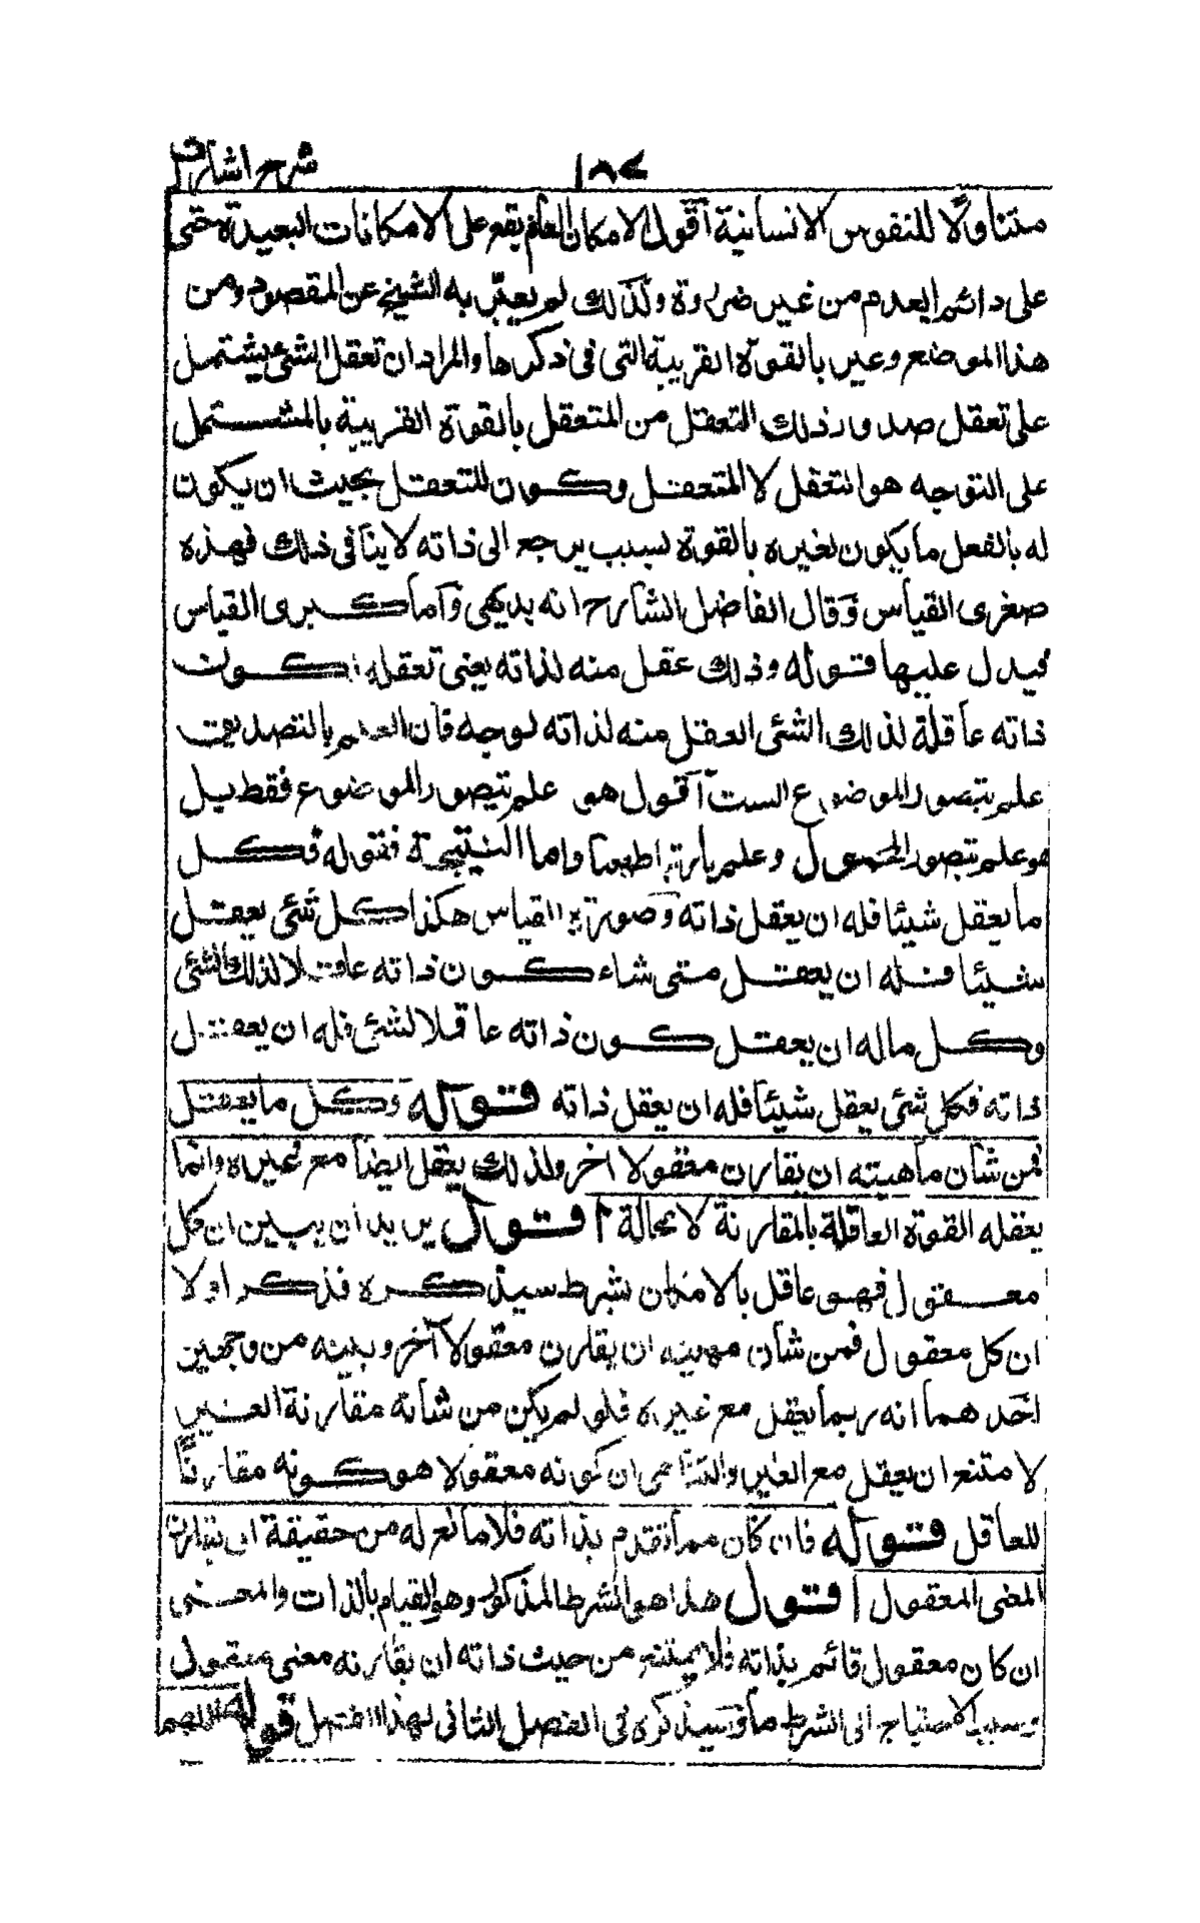 شرح اشارات
متناولا للنفوس الانسانية اقول الامكان العام يقع على الامكانات البعيدة حتى
على دائم العدم من غير ضرورة ولذلك لم يعبر به الشيخ عن المقصود من
هذا الموضع وعبر بالقوة القريبة التى فى ذكرها والمراد ان تعقل الشئ يشتمل
على تعقل صدور ذلك التعقل من المتعقل بالقوة القريبة بالمشتمل
على التوجه هو التعقل لا المتعقل وكون للتعقل بحيث ان يكون
له بالفعل ما يكون لغيره بالقوة لسبب يرجع الى ذاته لا ينافى ذلك فهذه
صغرى القياس وقال الفاضل الشارح انه بديهى واما كبرى القياس
فيدل عليها قوله وذلك عقل منه لذاته يعنى تعقله كون
ذاته عاقلة لذلك الشئ العقل منه لذاته لوجه فان العلم بالتصديق
علم بتصور الموضوع الست اقول هو علم بتصور الموضوع فقط بل
هو علم بتصور المحمول وعلم بارتباطهما واما النتيجة فقوله فكل
ما يعقل شيئا فله ان يعقل ذاته وصورة القياس هكذا كل شئ يعقل
شيئا فله ان يعقل متى شاء كون ذاته عاقلا لذلك الشئ
وكل ماله ان يعقل كون ذاته عاقلا لشئ فله ان يعقل
ذاته فكل شئ يعقل شيئا فله ان يعقل ذاته قوله وكل ما يعقل
فمن شان ماهيته ان يقارن معقولا اخر ولذلك يعقل ايضا مع غيره وانما
يعقله القوة العاقلة بالمقارنة لا محالة اقول يريد ان يبين ان كل
معقول فهو عاقل بالامكان بشرط سيذكره فذكر اولا
ان كل معقول فمن شان مهيته ان يقارن معقولا آخر وبينه من وجهين
احدهما انه ربما يعقل مع غيره فلو لم يكن من شانه مقارنة الغير
لا متنع ان يعقل مع الغير والثانى ان كونه معقولا هو كونه مقارنا
للعاقل قوله فان كان مما تقدم بذاته فلا مانع له من حقيقة ان يقارن
المعنى المعقول اقول هذا هو الشرط المذكور وهو القيام بالذات والمعنى
ان كان معقول قائم بذاته فلا يمتنع من حيث ذاته ان يقارنه معنى معقول
وسبب الاحتياج الى الشرط ما سيذكره فى الفصل الثانى لهذا الفصل قوله اللهم